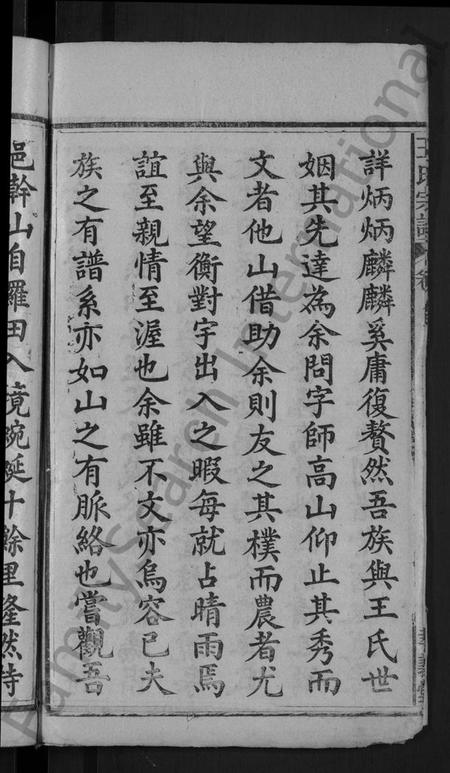 王氏宗譜
詳炳炳麟麟奚庸復贅然吾族與王氏世
姻其先達為余問字師高山仰止其秀而
文者他山借助余則友之其樸而農者尤
與余望衡對宇出入之暇每就占晴雨焉
誼至親情至渥也余雖不文亦烏容已夫
族之有譜系亦如山之有脈絡也嘗觀吾
邑斡山自羅田入境蜿蜒十餘里隆然特
FamilySearch International